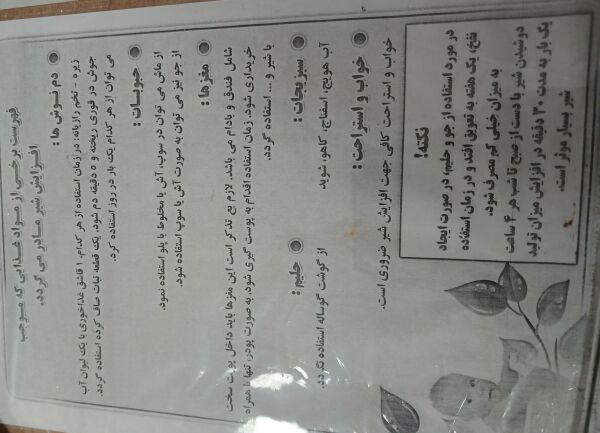 فهرست برخی از مواد غذایی که موجب
افزایش شیر مادر می گردد.
دم نوش ها :
زیره - تخم رازیانه: در زمان استفاده از هر کدام، ۱ قاشق غذاخوری با یک لیوان آب
جوش در قوری ریخته و ۵ دقیقه دم شود. یک قطعه نبات صاف کرده استفاده گردد.
می توان از هر کدام یک بار در روز استفاده کرد.
حبوبات :
از ماش می توان در سوپ، آش یا مخلوط با پلو استفاده نمود.
از جو نیز می توان به صورت آش یا سوپ استفاده شود.
مغزها :
شامل فندق و بادام می باشد. لازم بع تذکر است این مغزها باید داخل پوست سخت
خریداری شود. زمان استفاده اقدام به پوست گیری شود. به صورت پودر، تنها یا همراه
با شیر و ... استفاده گردد.
سبزیجات :
آب هویج، اسفناج، کاهو، شوید
حلیم :
از گوشت گوساله استفاده گردد.
خواب و استراحت :
خواب و استراحت کافی جهت افزایش شیر ضروری است.
نکته!
در مورد استفاده از جو و حلیم، در صورت ایجاد
نفخ، یک هفته به تعویق افتد و در زمان استفاده
به میزان خیلی کم مصرف شود.
دوشیدن شیر با دست از صبح تا شب هر ۴ ساعت
یک بار به مدت ۲۰ دقیقه در افزایش میزان تولید
شیر بسیار موثر است.